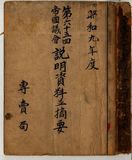 昭和九年度
第六十五回
帝國議會
説明資料並摘要
專賣局